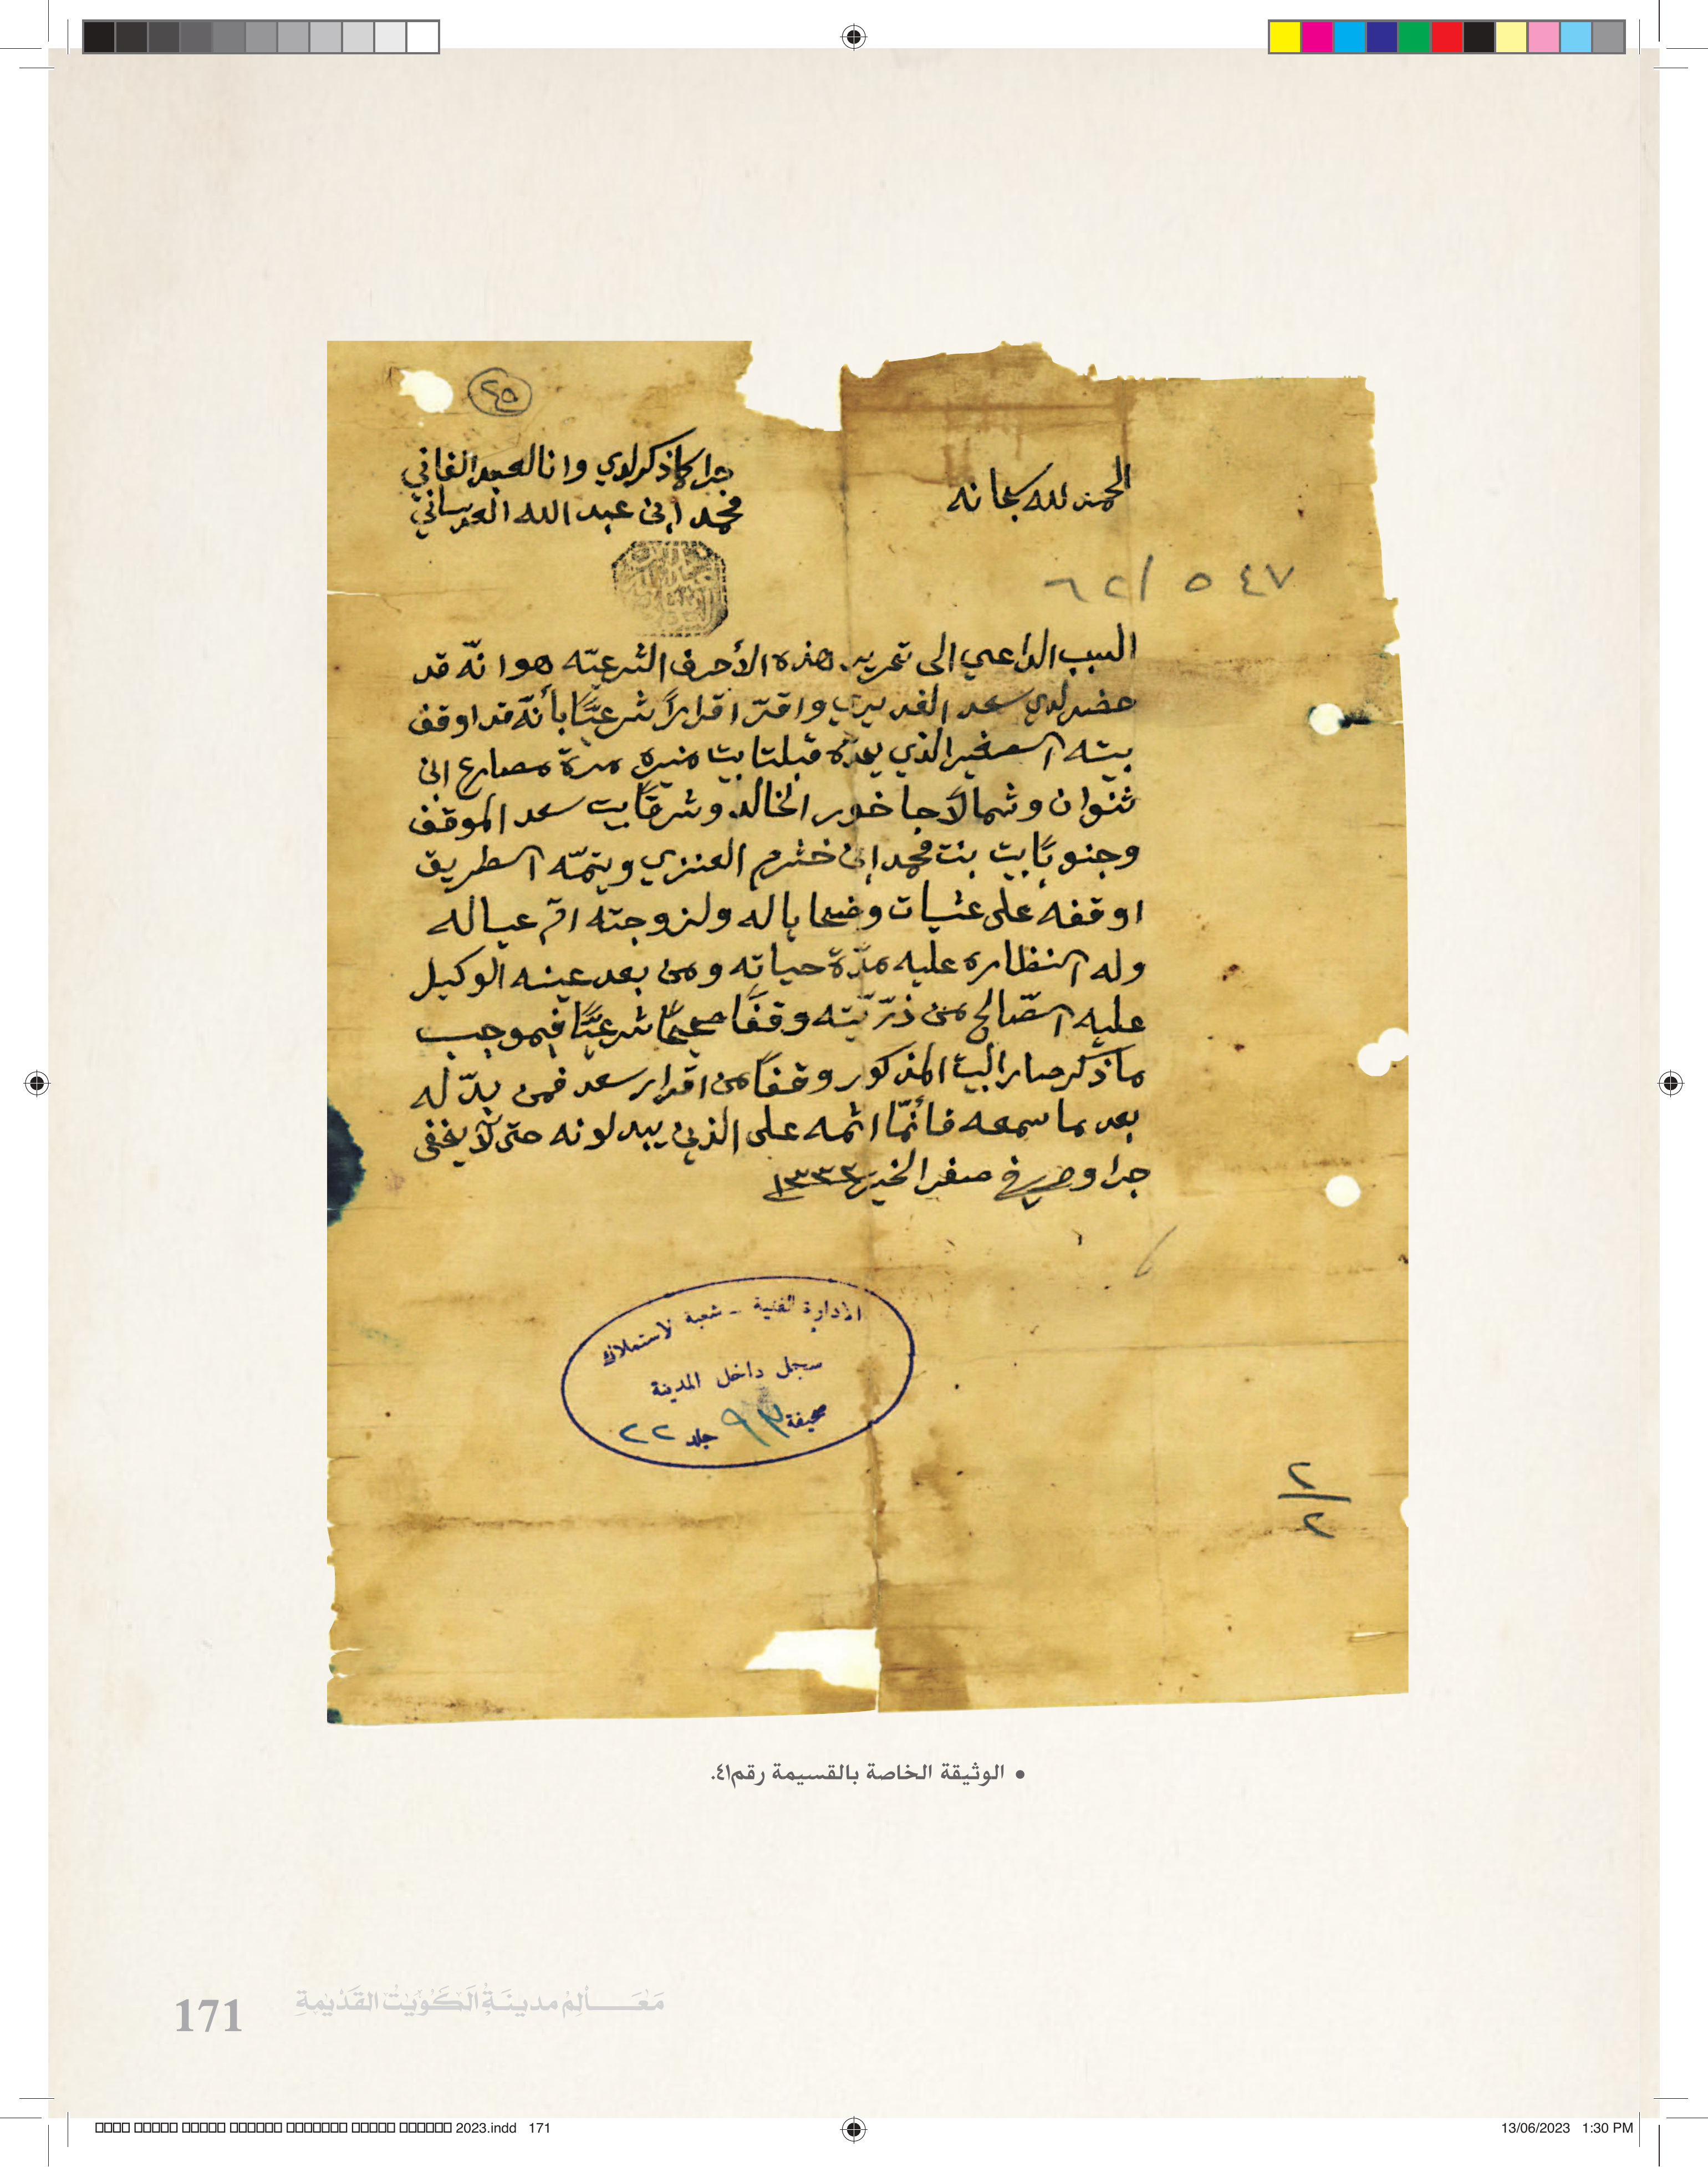 ٢٥
الحمد لله سبحانه
جرا كما ذكر لدي وانا العبد الفاني
محمد ابن عبدالله العدساني
٥٤٧ / ٦٢
السبب الداعي الى تحرير هذه الأحرف الشرعيّه هو انّه قد
حضر لدي سعد الغديري واقرّ اقرارًا شرعيًّا بأنّه قد اوقف
بيته الصغير الذي يحدّه قبلتا بيت منيره مرة مصارع ابن
ثنوان وشمالًا جاخور الخالد وشرقًا بيت سعد الموقف
وجنوبًا بيت بنت محمد ابن خشرم العنزي ويتمّه الطريق
اوقفه على عشيات وضحايا له ولزوجته امّ عياله
وله النظاره عليه مدّة حياته ومن بعد عينه الوكيل
عليه الصّالح من ذرّيّته وقفًا صحيحًا شرعيًّا فبموجب
ما ذكر صار البيت المذكور وقفًا من اقرار سعد فمن بدّله
بعد ما سمعه فأنّما اثمه على الذين يبدلونه حتى لا يخفى
جرا وحرر في صفر الخير ١٣٣٣
الادارة الفنية - شعبة الاستملاك
سجل داخل المدينة
صحيفة ٩٣ جلد ٢٢
٢/٢
• الوثيقة الخاصة بالقسيمة رقم٤١.
171 مَعَـــالِمُ مدينَةِ الكُوَيْتِ القَدِيمَةِ
2023.indd 171
13/06/2023 1:30 PM